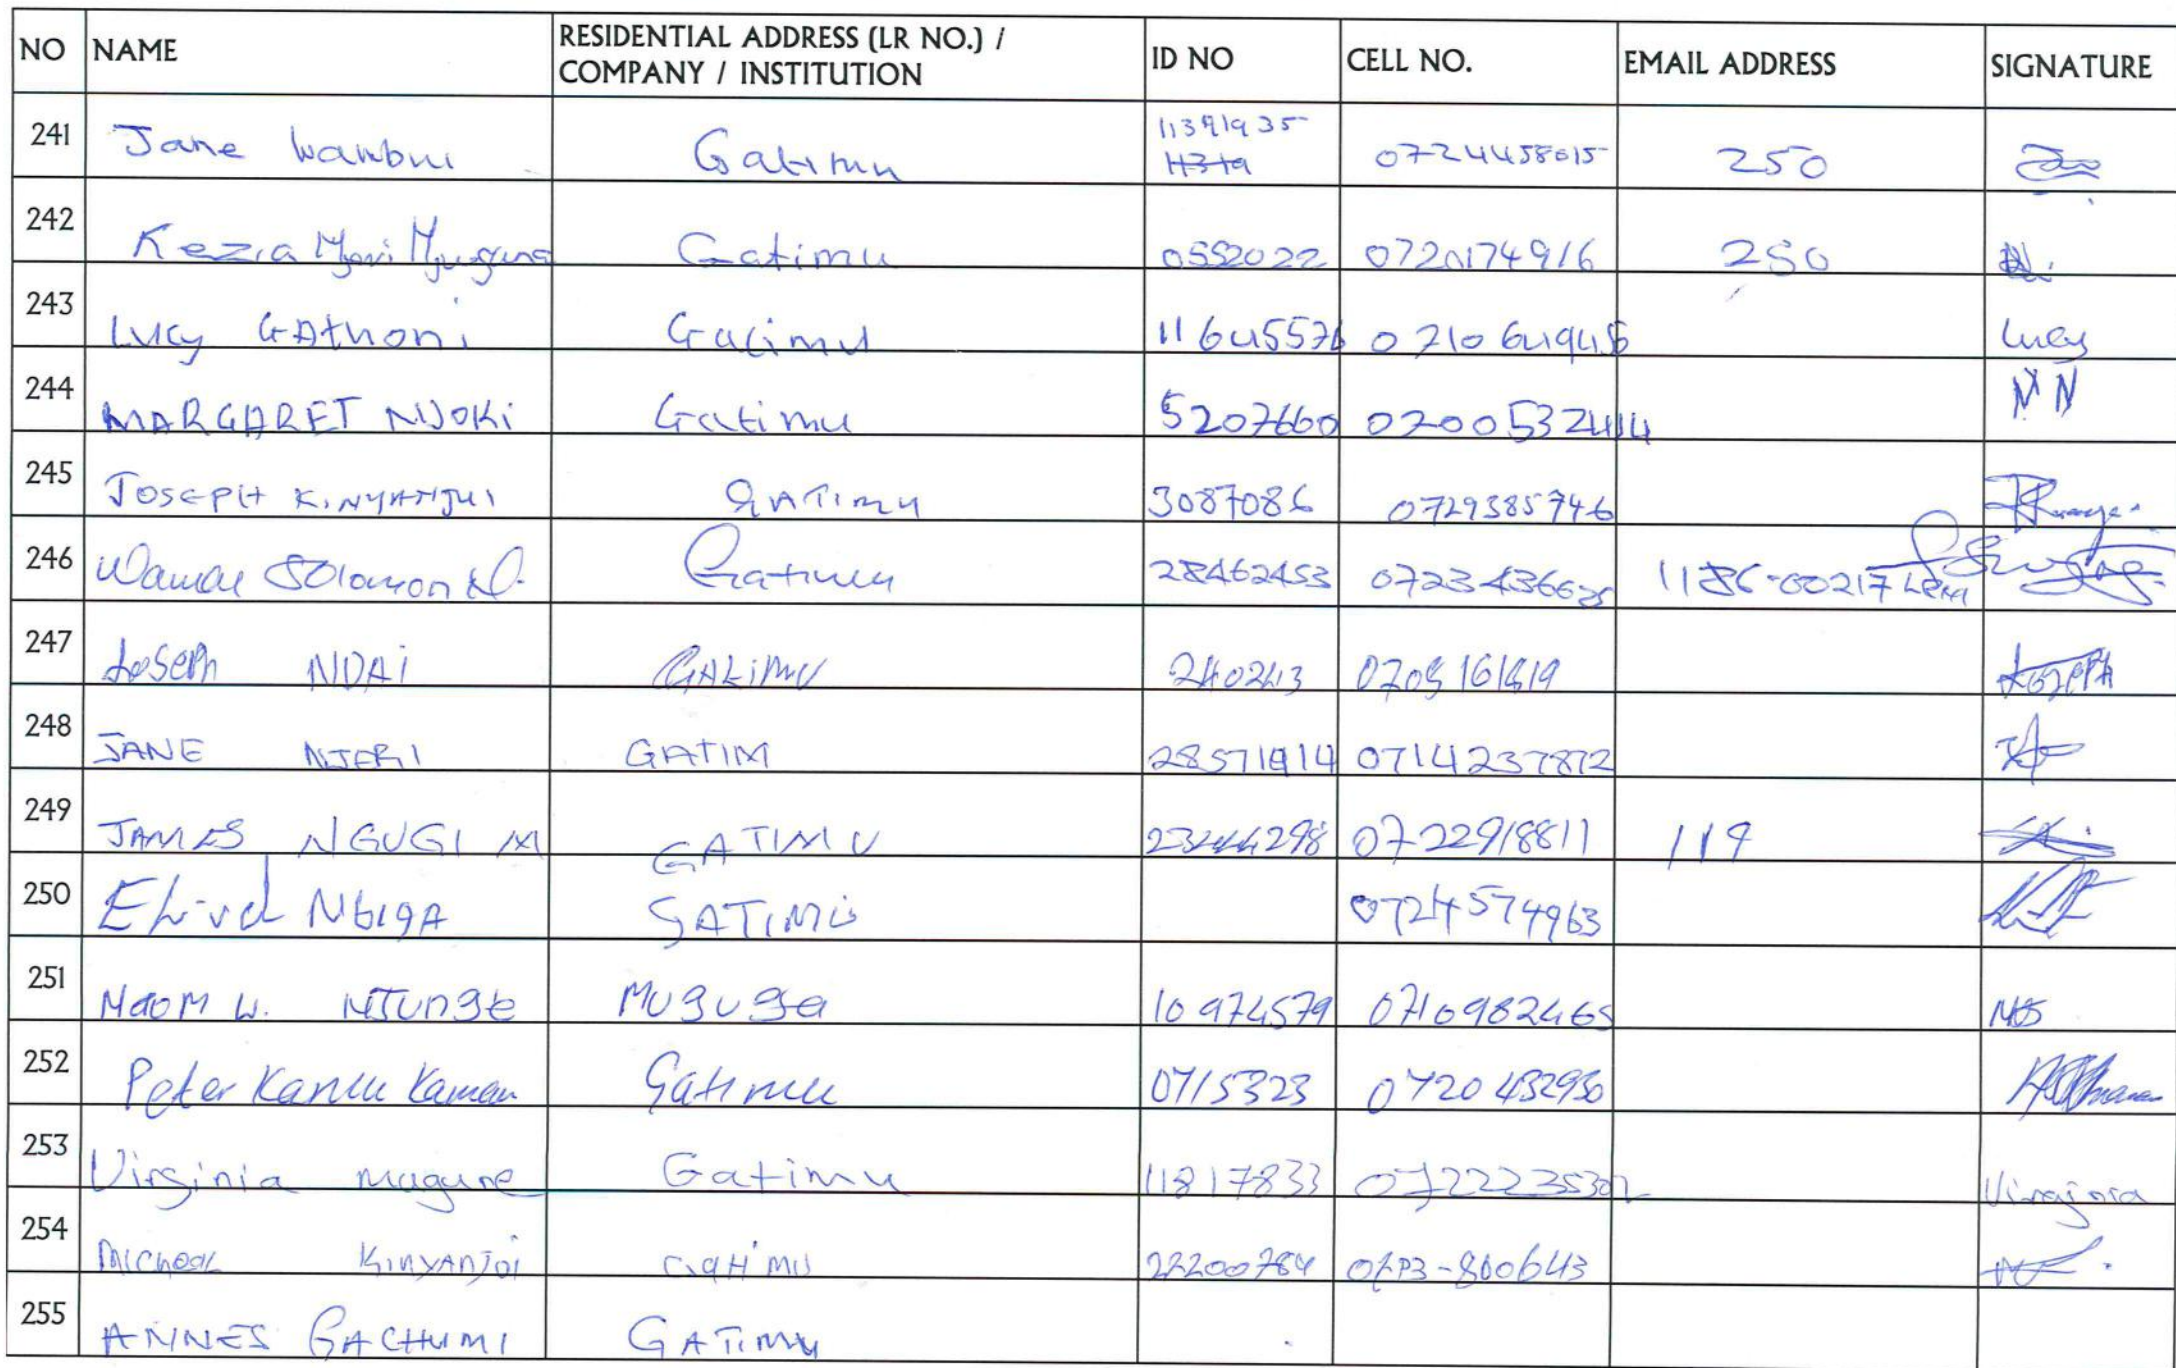 NO NAME RESIDENTIAL ADDRESS (LR NO.) / COMPANY / INSTITUTION ID NO CELL NO. EMAIL ADDRESS SIGNATURE
241 Jane Wambui Gatimu 11391935 0724458015 250
242 Kezia Njeri Njuguna Gatimu 0552022 0720174916 250
243 Lucy GAthoni Gatimu 11645576 Lucy
244 MARGARET NJOKI Gatimu 5207660 0700532414 NN
245 JOSEPH KINYANJUI GATIMU 3087086 0729385746
246 Solomon Gatimu 28462453
247 Joseph NDAI GATIMU Joseph
248 JANE NJERI GATIM 28571914 0714237872
249 JAMES NGUGI M GATIMU 0722918811 119
250 GATIMU 0724574963
251 NaoM W. NJUNGE MUGUGa 10974579 0710982465
252 Peter Gatimu 0715323 0720432930
253 Virginia Mugure Gatimu 11817833 Virginia
254 KINYANJOI Gatimu 22200784
255 ANNES GACHUMI GATIMU